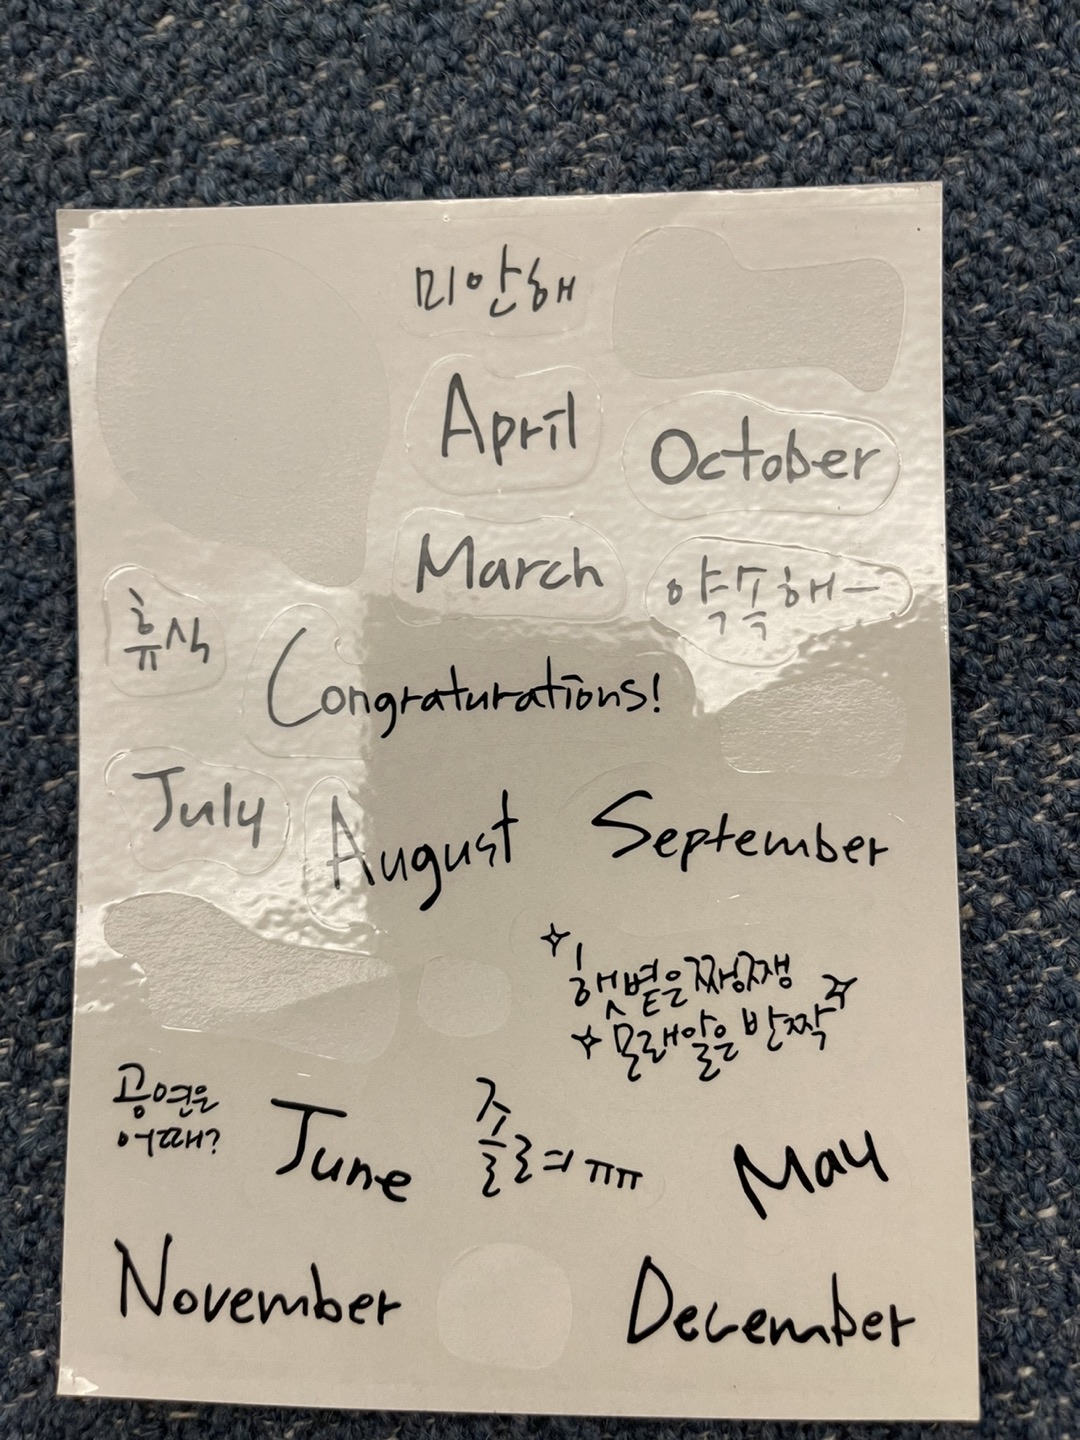 미안해
April
October
March
약속해ㅡ
휴식
Congraturations!
July
August
September
햇볕은 쨍쨍
모래알은 반짝
공연은
어때?
June
졸륵ㅠㅠ
May
November
December